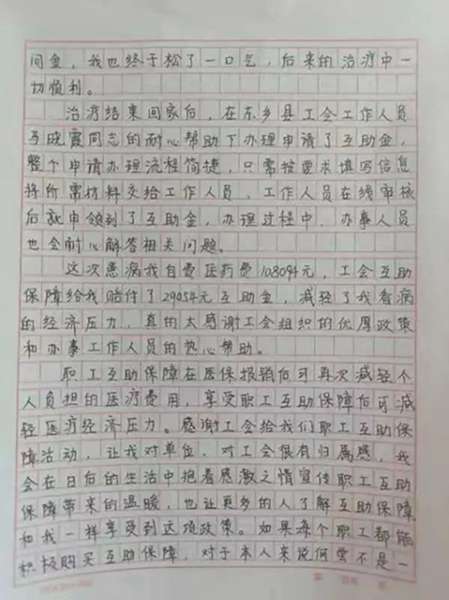 间金，我也终于松了一口气，后来的治疗中一
切顺利。
治疗结束回家后，在东乡县工会工作人员
马晓霞同志的耐心帮助下办理申请了互助金，
整个申请办理流程简捷，只需按要求填写信息
将所需材料交给工作人员，工作人员在线审核
后就申领到了互助金，办理过程中，办事人员
也会耐心解答相关问题。
这次患病我自费医疗费108094元，工会互助
保障给我赔付了29054元互助金，减轻了我看病
的经济压力，真的太感谢工会组织的优厚政策
和办事工作人员的热心帮助。
职工互助保障在医保报销后可再次减轻个
人负担的医疗费用，享受职工互助保障后可减
轻医疗经济压力。感谢工会给我们职工互助保
障活动，让我对单位，对工会很有归属感，我
会在日后的生活中抱着感激之情宣传职工互助
保障带来的温暖，也让更多的人了解互助保障
和我一样享受到这项政策。如果每个职工都能
积极购买互助保障，对于本人来说何尝不是一